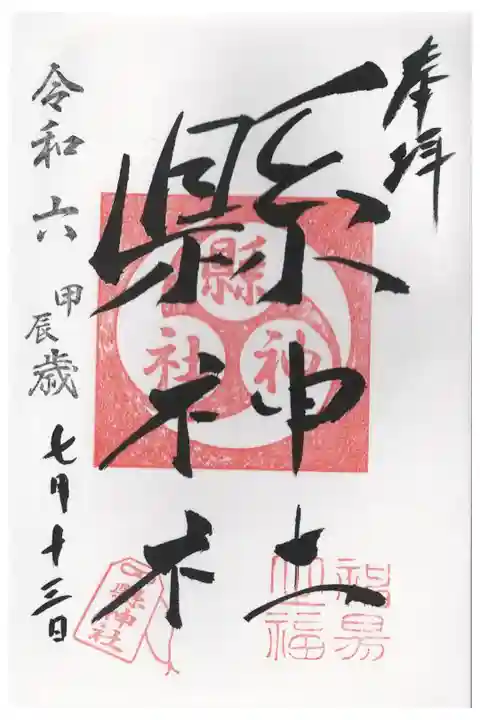 奉拝
縣神社
縣
神
社
令和六甲辰歳七月十三日
縣神社